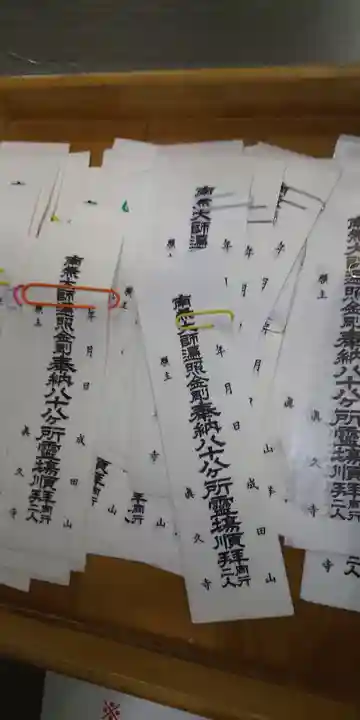 南無大師遍照金剛奉納八十八ケ所靈場順拜同行二人
願主
眞久寺
南無大師遍
年
年月日
成田山
南無大師遍照金剛奉納八十八ケ所靈場順拜同行二人
願主
眞久寺
年月日
成田山
南無大師遍照金剛奉納八十八ケ所靈場順拜同行二人
願主
眞久寺
※